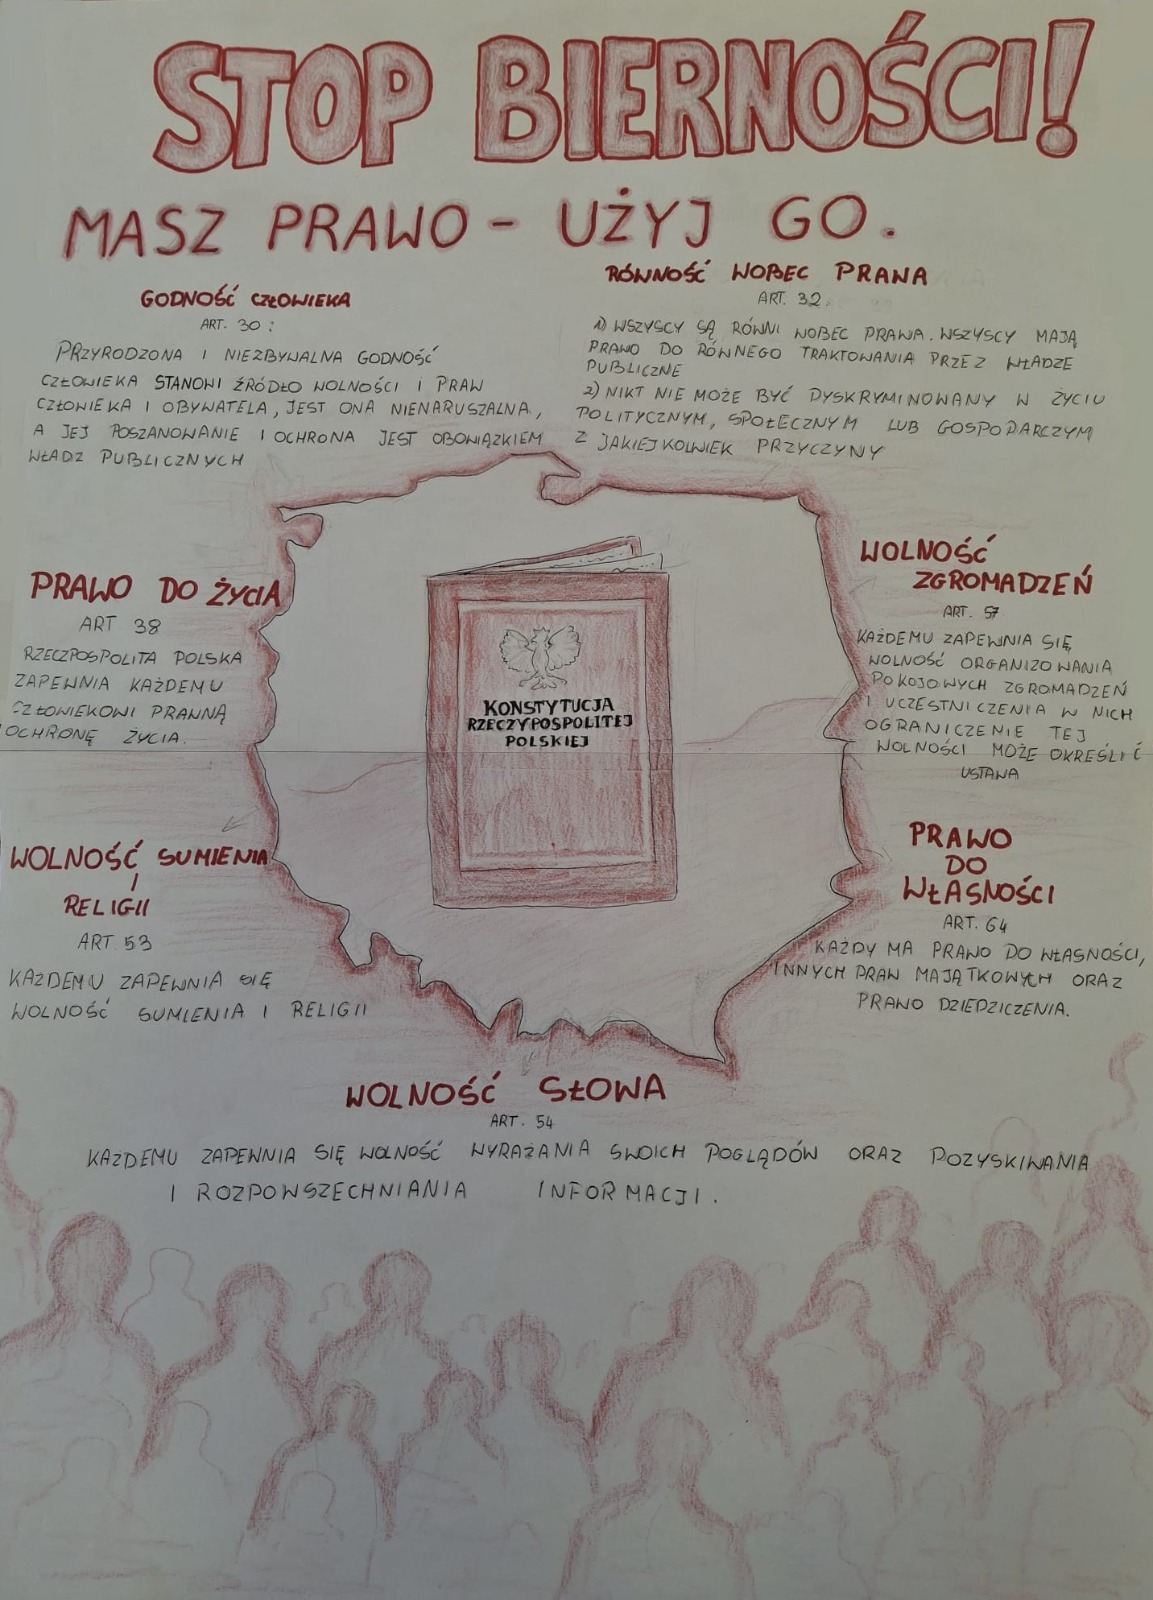 STOP BIERNOŚCI!
MASZ PRAWO - UŻYJ GO.
GODNOŚĆ CZŁOWIEKA
ART. 30:
PRZYRODZONA I NIEZBYWALNA GODNOŚĆ
CZŁOWIEKA STANOWI ŹRÓDŁO WOLNOŚCI I PRAW
CZŁOWIEKA I OBYWATELA, JEST ONA NIENARUSZALNA,
A JEJ POSZANOWANIE I OCHRONA JEST OBOWIĄZKIEM
WŁADZ PUBLICZNYCH
RÓWNOŚĆ WOBEC PRAWA
ART. 32.
1) WSZYSCY SĄ RÓWNI WOBEC PRAWA. WSZYSCY MAJĄ
PRAWO DO RÓWNEGO TRAKTOWANIA PRZEZ WŁADZE
PUBLICZNE
2) NIKT NIE MOŻE BYĆ DYSKRYMINOWANY W ŻYCIU
POLITYCZNYM, SPOŁECZNYM LUB GOSPODARCZYM
Z JAKIEJKOLWIEK PRZYCZYNY
PRAWO DO ŻYCIA
ART 38
RZECZPOSPOLITA POLSKA
ZAPEWNIA KAŻDEMU
CZŁOWIEKOWI PRAWNĄ
OCHRONĘ ŻYCIA.
WOLNOŚĆ
ZGROMADZEŃ
ART. 57
KAŻDEMU ZAPEWNIA SIĘ
WOLNOŚĆ ORGANIZOWANIA
POKOJOWYCH ZGROMADZEŃ
I UCZESTNICZENIA W NICH
OGRANICZENIE TEJ
WOLNOŚCI MOŻE OKREŚLIĆ
USTAWA
KONSTYTUCJA
RZECZYPOSPOLITEJ
POLSKIEJ
WOLNOŚĆ SUMIENIA
I
RELIGII
ART 53
KAŻDEMU ZAPEWNIA SIĘ
WOLNOŚĆ SUMIENIA I RELIGII
PRAWO
DO
WŁASNOŚCI
ART. 64
KAŻDY MA PRAWO DO WŁASNOŚCI,
INNYCH PRAW MAJĄTKOWYCH ORAZ
PRAWO DZIEDZICZENIA.
WOLNOŚĆ SŁOWA
ART. 54
KAŻDEMU ZAPEWNIA SIĘ WOLNOŚĆ WYRAŻANIA SWOICH POGLĄDÓW ORAZ POZYSKIWANIA
I ROZPOWSZECHNIANIA INFORMACJI.